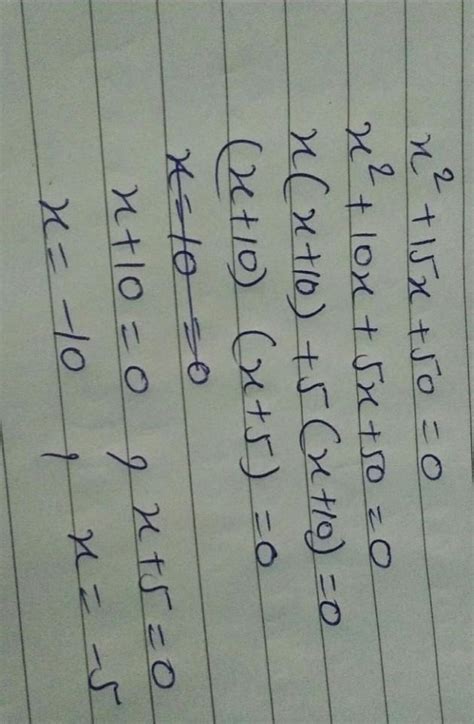 x² + 15x + 50 = 0
x² + 10x + 5x + 50 = 0
x(x+10) + 5(x+10) = 0
(x+10) (x+5) = 0
x = 10 = 0
x+10 = 0 , x+5 = 0
x = -10 , x = -5